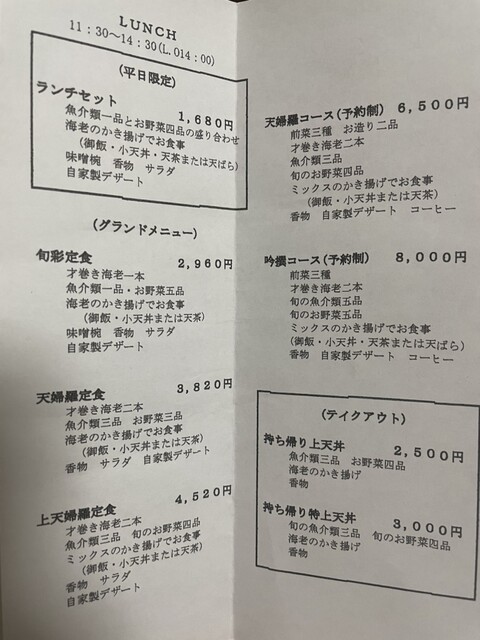 LUNCH
11:30〜14:30(L.O14:00)
(平日限定)
ランチセット 1,680円
魚介類一品とお野菜四品の盛り合わせ
海老のかき揚げでお食事
(御飯・小天丼・天茶または天ばら)
味噌椀 香物 サラダ
自家製デザート
(グランドメニュー)
旬彩定食 2,960円
才巻き海老一本
魚介類一品・お野菜五品
海老のかき揚げでお食事
(御飯・小天丼または天茶)
味噌椀 香物 サラダ
自家製デザート
天婦羅定食 3,820円
才巻き海老二本
魚介類三品 お野菜三品
海老のかき揚げでお食事
(御飯・小天丼または天茶)
香物 サラダ 自家製デザート
上天婦羅定食 4,520円
才巻き海老二本
魚介類三品 旬のお野菜四品
ミックスのかき揚げでお食事
(御飯・小天丼または天茶)
香物 サラダ
自家製デザート
天婦羅コース(予約制) 6,500円
前菜三種 お造り二品
才巻き海老二本
魚介類三品
旬のお野菜四品
ミックスのかき揚げでお食事
(御飯・小天丼または天茶)
香物 自家製デザート コーヒー
吟撰コース(予約制) 8,000円
前菜三種
才巻き海老二本
旬の魚介類五品
旬のお野菜五品
ミックスのかき揚げでお食事
(御飯・小天丼・天茶または天ばら)
香物 自家製デザート コーヒー
(テイクアウト)
持ち帰り上天丼 2,500円
魚介類三品 お野菜四品
海老のかき揚げ
香物
持ち帰り特上天丼 3,000円
旬の魚介類三品 旬のお野菜四品
海老のかき揚げ
香物